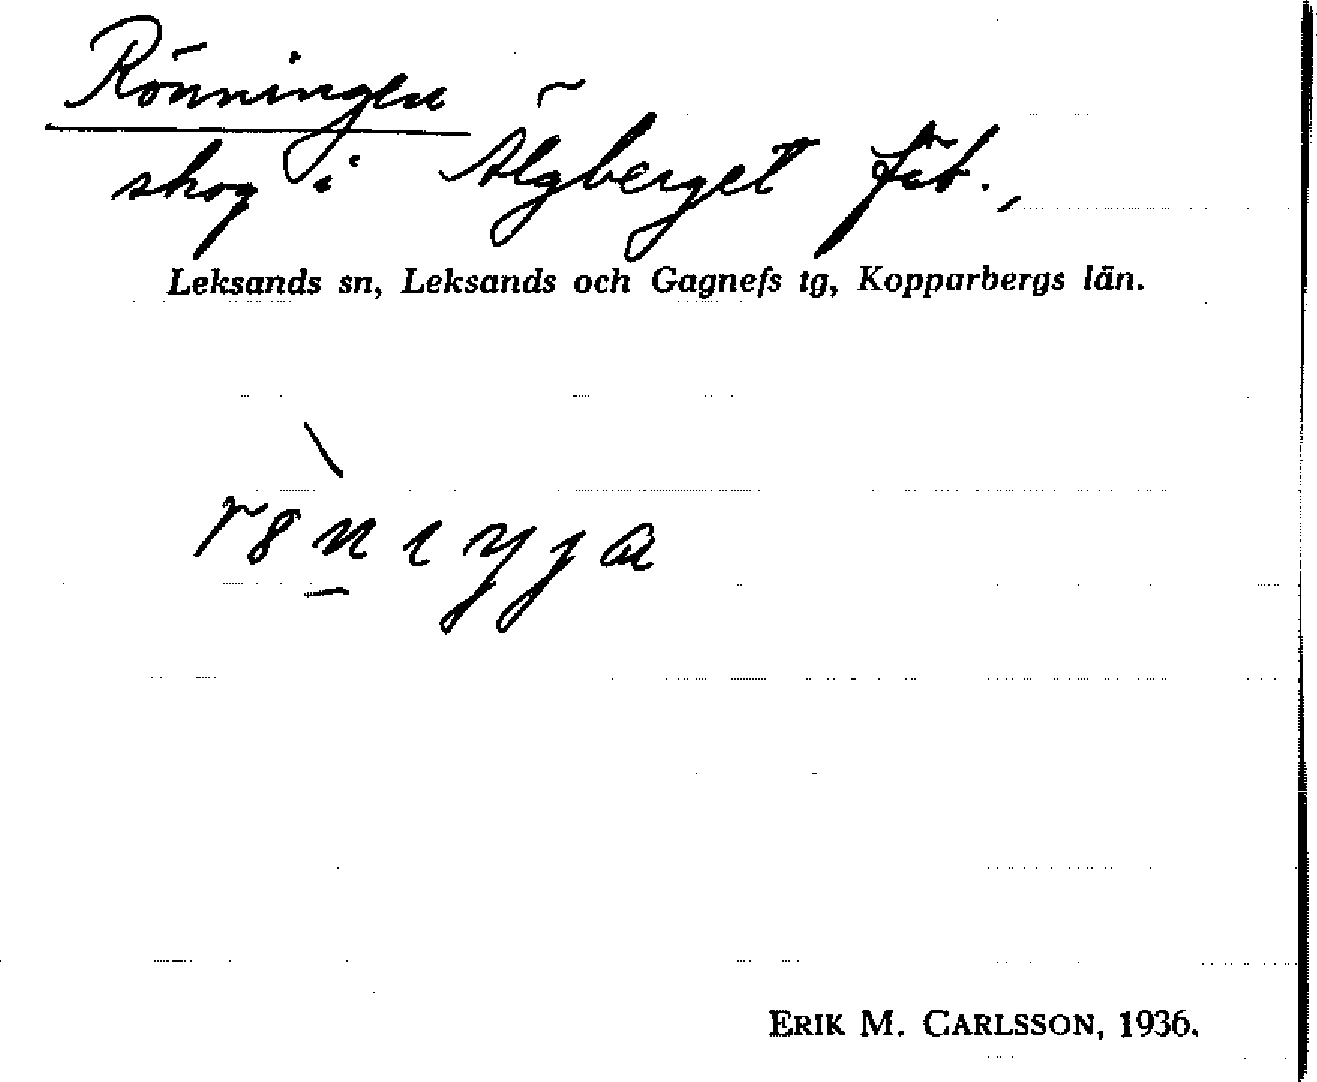 Rönningen
skog i Älgberget fåb.,
Leksands sn, Leksands och Gagnefs tg, Kopparbergs län.
ERIK M. CARLSSON, 1936.